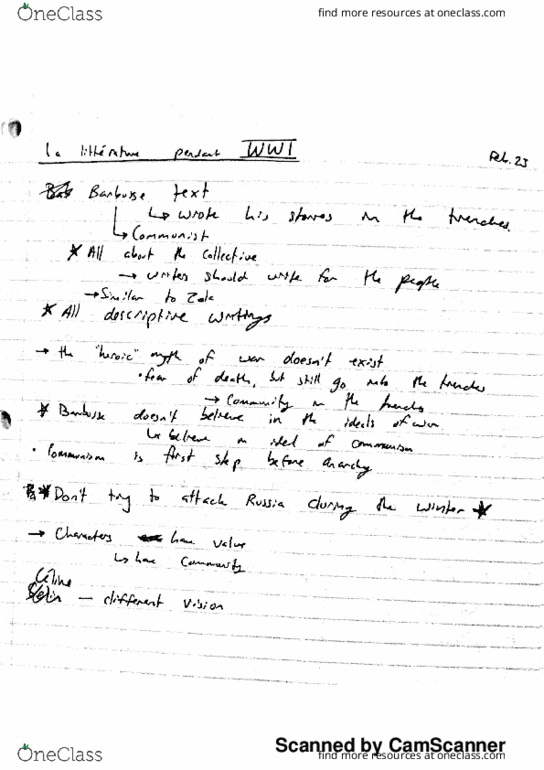 OneClass
find more resources at oneclass.com
la littérature pendant WWI
Feb. 23
Barbusse text
↳ wrote his stories in the trenches.
↳ Communist
* All about the collective
→ writers should write for the people
→ Similar to Zola
* All descriptive writings
→ the "heroic" myth of war doesn't exist
• fear of death, but still go into the trenches
→ Community in the trenches
* Barbusse doesn't believe in the ideals of war
↳ believe in ideal of communism
• Communism is first step before anarchy
* Don't try to attack Russia during the winter *
→ Characters have value
↳ have Community
Céline
— different vision
Scanned by CamScanner
OneClass
find more resources at oneclass.com